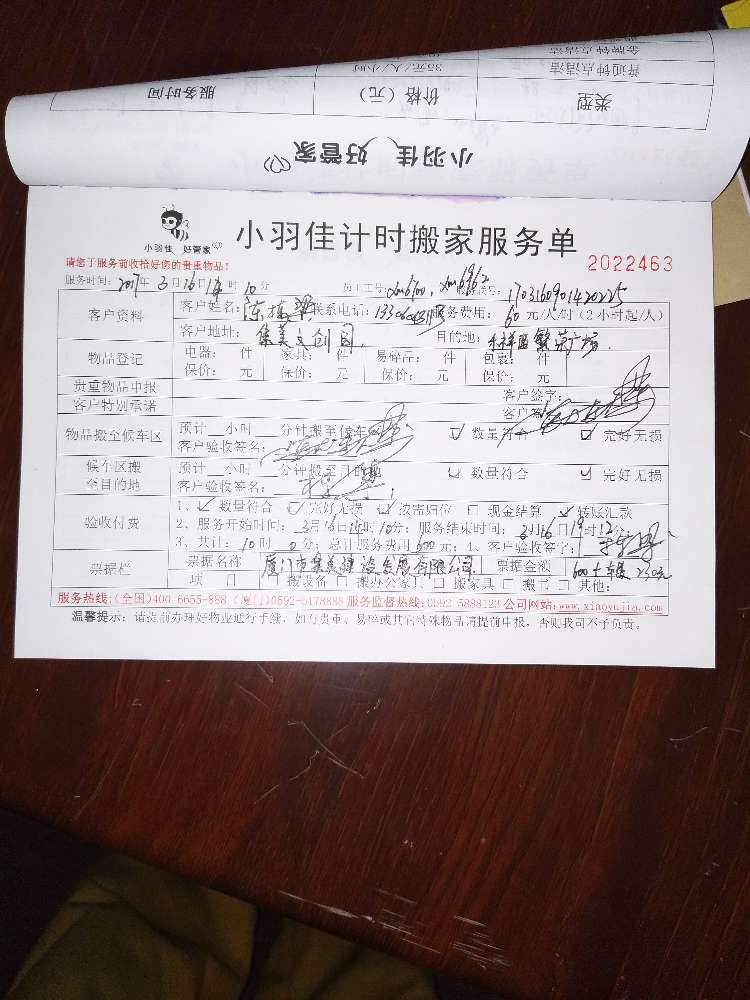 服务时间 价格（元） 类型
35元/人/小时 普通钟点清洁
金牌钟点清洁
小羽佳 好管家
小羽佳 好管家
小羽佳计时搬家服务单
2022463
请您于服务前收拾好您的贵重物品！
服务时间：2017年3月16日14时10分 员工工号：xm6700、xm6962 服务获号：1703160901420225
客户资料 客户姓名： 联系电话： 服务费用：60元/人/时(2小时起/人)
客户地址：集美文创园 目的地：繁荣广场
物品登记 电器： 件 家具： 件 易碎品： 件 包裹： 件
保价： 元 保价： 元 保价： 元 保价： 元
贵重物品申报 客户签字：
客户特别承诺 客户签
物品搬至候车区 预计__小时__分钟搬至候车区 ☑ 数量符合 ☑ 完好无损
客户验收签名：
候车区搬至目的地 预计__小时__分钟搬至目的地 ☑ 数量符合 ☑ 完好无损
客户验收签名：
验收付费 1、☑ 数量符合 ☑ 完好无损 ☑ 按需归位 □ 现金结算 ☑ 转账汇款
2、服务开始时间：3月16日14时10分；服务结束时间：3月16日19时12分；
3、共计：10时0分；总计服务费用600元；4、客户验收签字：
票据栏 票据名称 厦门市集美建设发展有限公司 票据金额 600+车费230元
项 目 □ 搬设备 □ 搬办公家具 □ 搬家具 □ 搬书 □ 其他：
服务热线：(全国)400 6655-888 (厦门)0592-5178888 服务监督热线：0592 5888123 公司网站：www.xiaoyujia.com
温馨提示：请提前办理好物业进行手续，如有贵重、易碎或其它特殊物品请提前申报，否则我司不予负责。